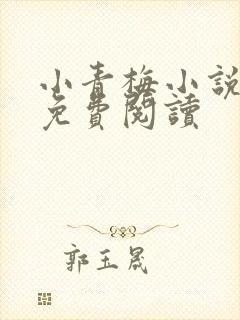 小青梅小說
免費閱讀
郭玉晟